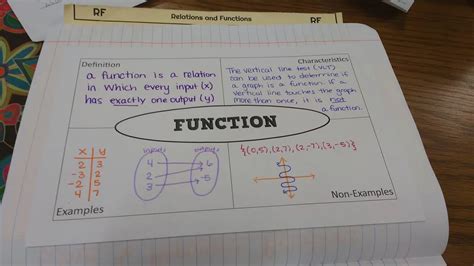 RF
Relations and Functions
RF
Definition
a function is a relation
in which every input (x)
has exactly one output (y)
Characteristics
The vertical line test (VLT)
can be used to determine if
a graph is a function. if a
vertical line touches the graph
more than once, it is not
a function.
FUNCTION
x y
2 3
-3 2
-2 5
4 7
inputs outputs
4 6
2 -5
3
Examples
{(0,5),(2,7),(2,-7),(3,-5)}
Non-Examples